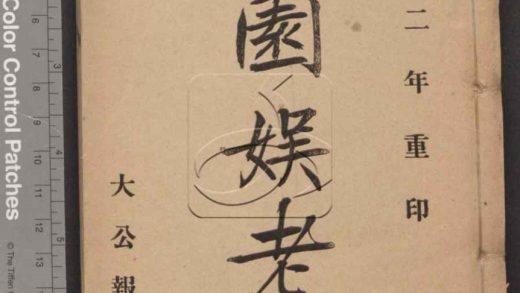 二年重印
園娛老
大公報
Color Control Patches
© The Tiffen
6
7
8
9
10
11
12
13
3
4
5